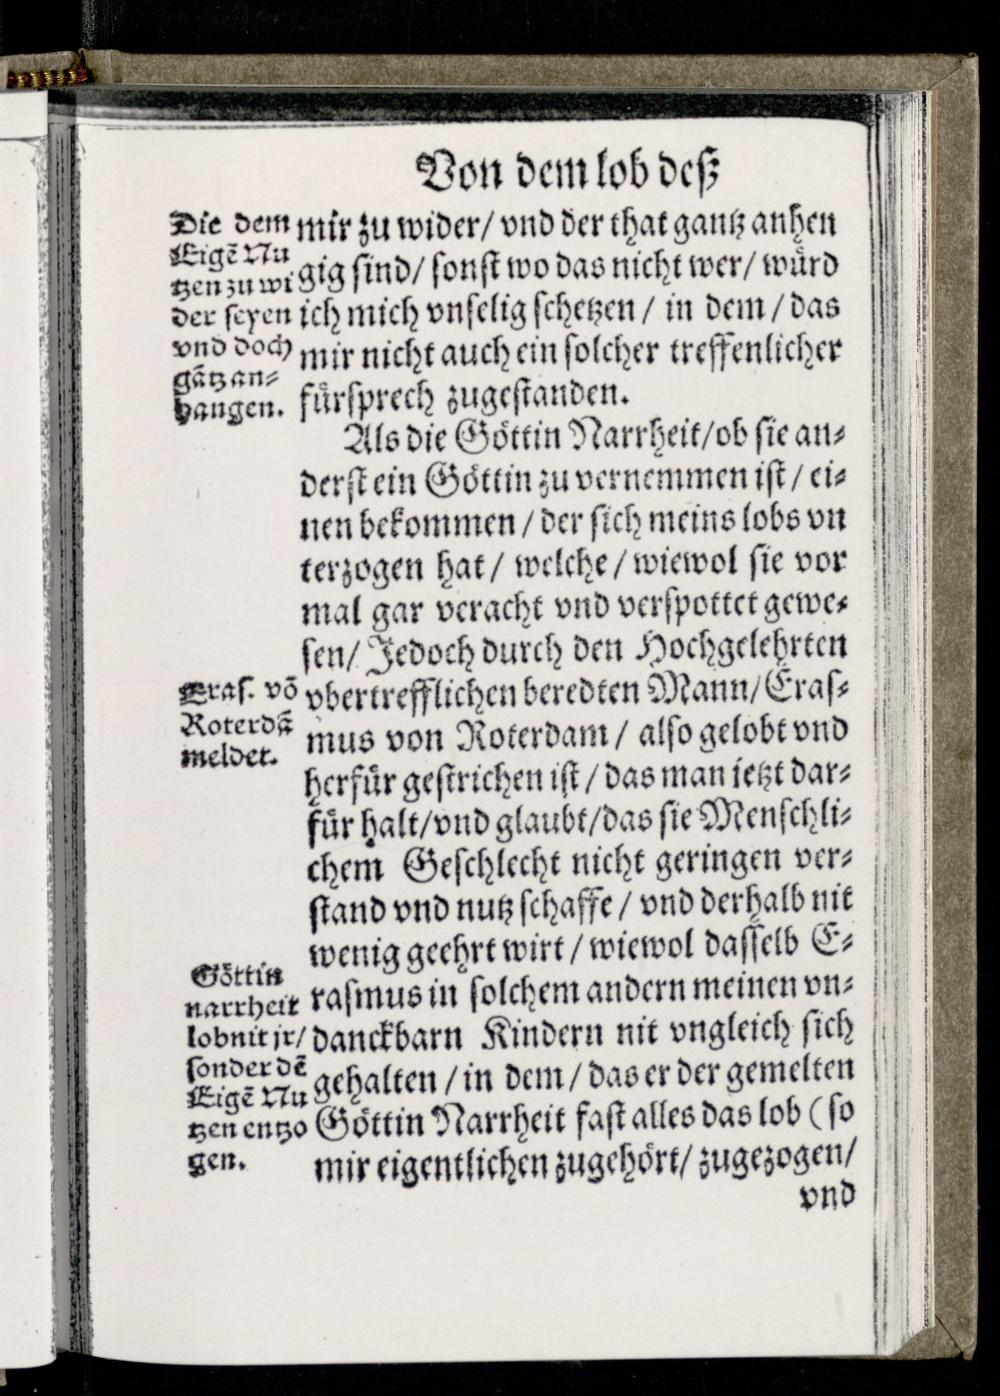 Von dem lob deß
Die dem
Eigẽ Nu
tzen zu wi
der seyen
vnd doch
gãtz an⸗
hangen.
mir zu wider/ vnd der that gantz anhen
gig sind/ sonst wo das nicht wer/ wuͤrd
ich mich vnselig schetzen / in dem / das
mir nicht auch ein solcher treffenlicher
fuͤrsprech zugestanden.
Als die Goͤttin Narrheit/ob sie an⸗
derst ein Goͤttin zu vernemmen ist / ei⸗
nen bekommen / der sich meins lobs vn
terzogen hat / welche / wiewol sie vor
mal gar veracht vnd verspottet gewe⸗
sen/ Jedoch durch den Hochgelehrten
Eras. võ
Roterdã
meldet.
vbertrefflichen beredten Mann/ Eras⸗
mus von Roterdam / also gelobt vnd
herfuͤr gestrichen ist / das man ietzt dar⸗
fuͤr halt/vnd glaubt/das sie Menschli⸗
chem Geschlecht nicht geringen ver⸗
stand vnd nutz schaffe / vnd derhalb nit
wenig geehrt wirt / wiewol dasselb E⸗
Goͤttin
narrheit
lob nit jr/
sonder dẽ
Eigẽ Nu
tzen entzo
gen.
rasmus in solchem andern meinen vn⸗
danckbarn Kindern nit vngleich sich
gehalten / in dem / das er der gemelten
Goͤttin Narrheit fast alles das lob (so
mir eigentlichen zugehoͤrt/ zugezogen/
vnd